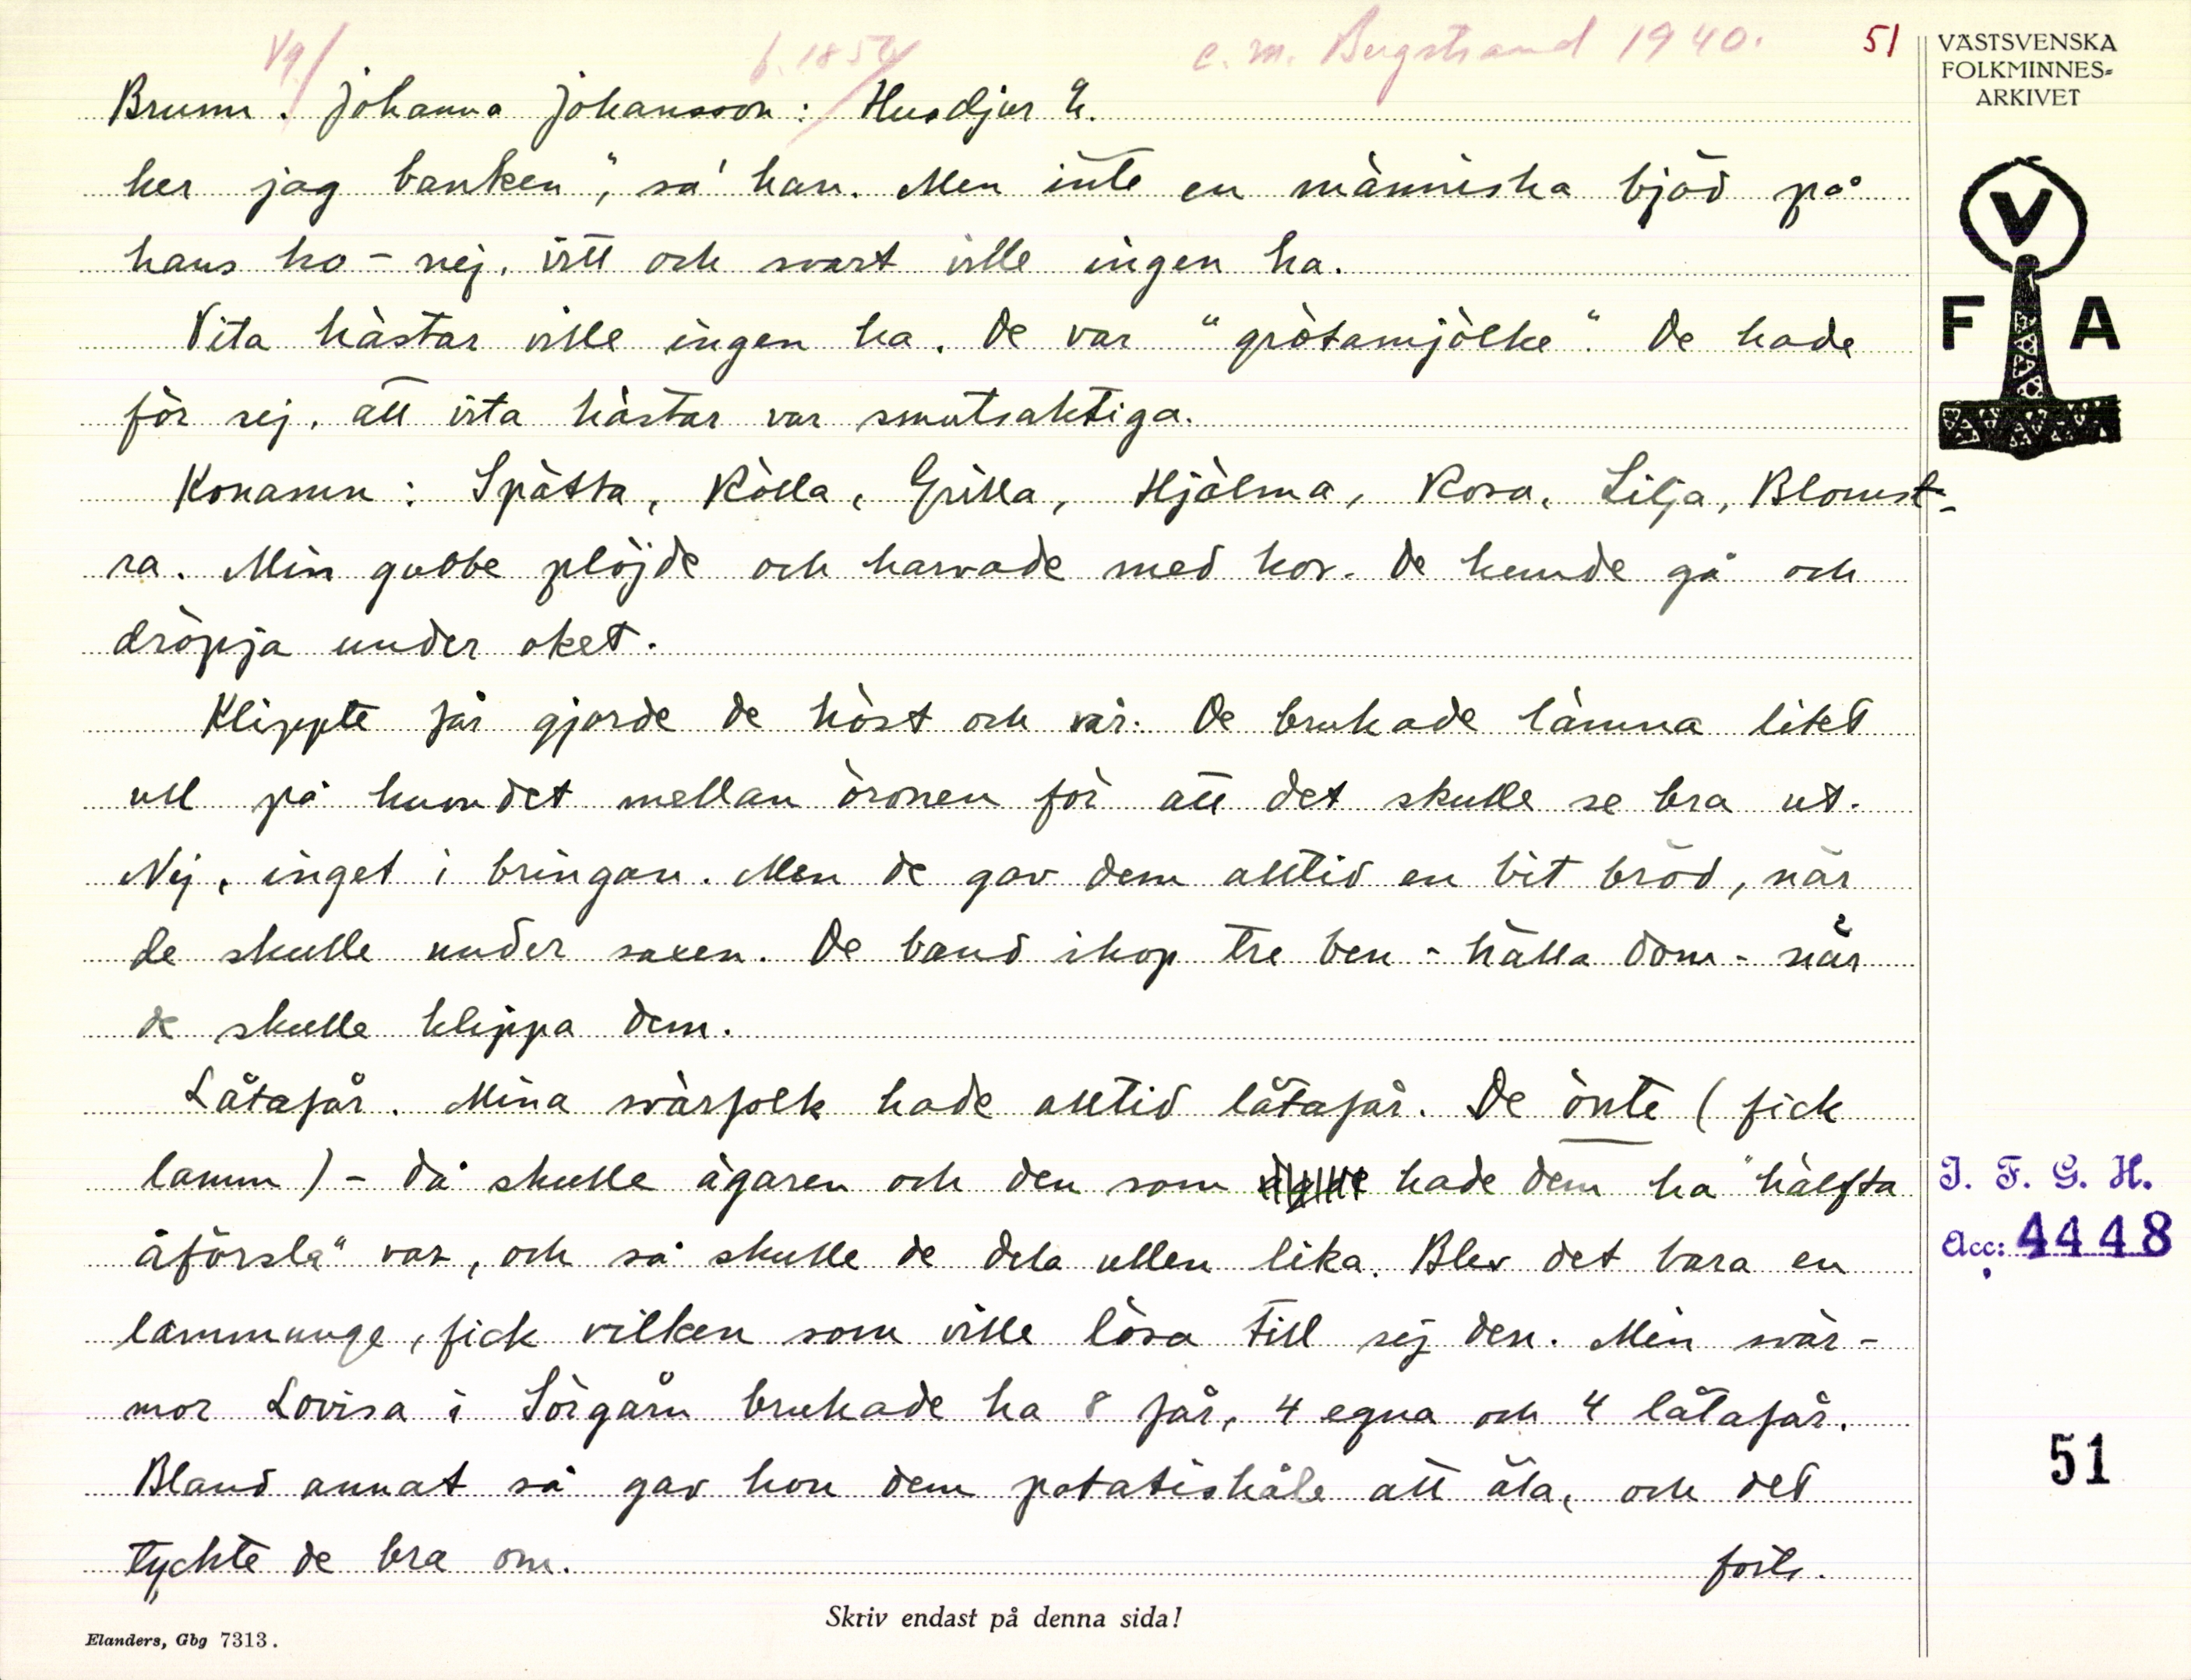 Vg/ f. 1854/ C. M. Bergstrand 1940. 51
Brunn. Johanna Johansson: Husdjur 2.
ker jag banken", sa' han. Men inte en människa bjöd på
hans ko - nej, vitt och svart ville ingen ha.
Vita hästar ville ingen ha. De var "grötamjölke". De hade
för sej, att vita hästar var smutsaktiga.
Konamn: Spätta, Kölla, Grilla, Hjälma, Rosa, Lilja, Blomst-
ra. Min gubbe plöjde och harvade med kor. De kunde gå och
dröpja under oket.
Klippte får gjorde de höst och vår. De brukade lämna litet
ull på huvudet mellan öronen för att det skulle se bra ut.
Nej, inget i bringan. Men de gav dem alltid en bit bröd, när
de skulle under saxen. De band ihop tre ben - hälla dom - när
de skulle klippa dem.
Låtafår. Mina svärfolk hade alltid låtafår. De önte (fick
lamm) - då skulle ägaren och den som hade dem ha "hälfta
åförsla" var, och så skulle de dela ullen lika. Blev det bara en
lammunge, fick vilken som ville lösa till sej den. Min svär-
mor Lovisa i Sörgårn brukade ha 8 får, 4 egna och 4 låtafår.
Bland annat så gav hon dem potatiskåle att äta, och det
tyckte de bra om.
forts.
Skriv endast på denna sida!
Elanders, Gbg 7313.
VÄSTSVENSKA
FOLKMINNES-
ARKIVET
V
F A
I. F. G. H.
Acc: 4448
51